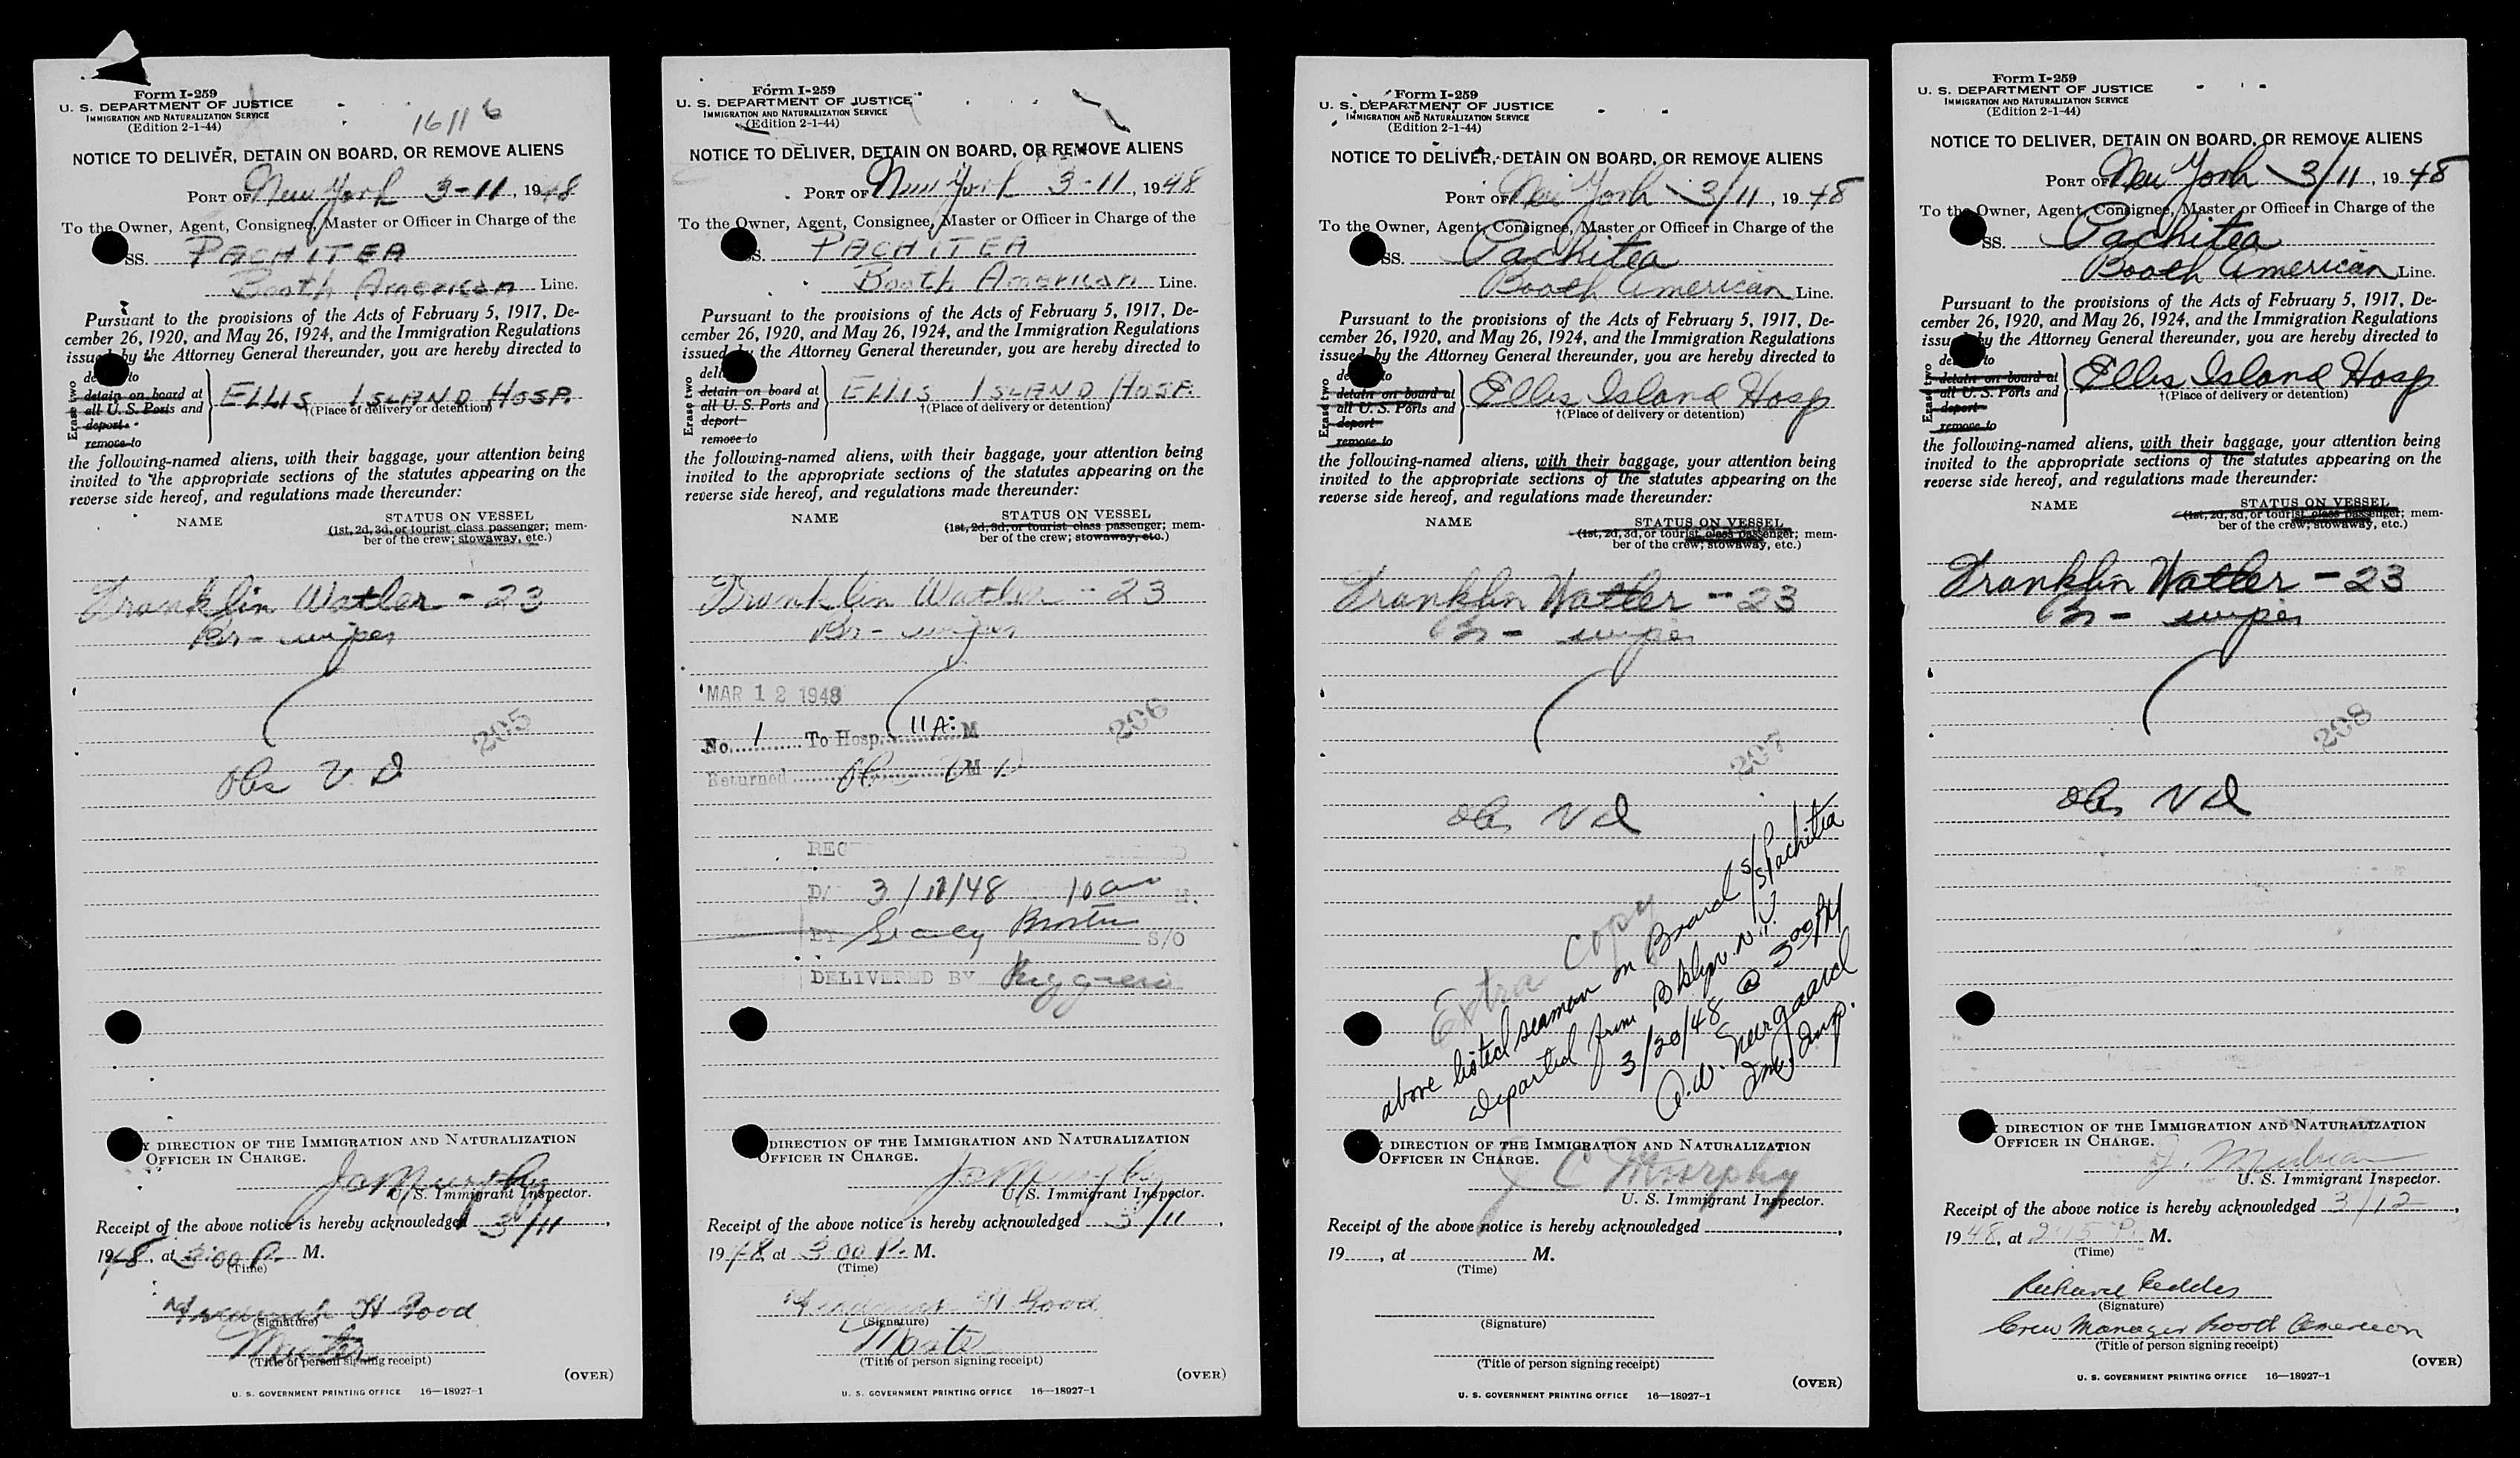 Form I-259
U. S. DEPARTMENT OF JUSTICE
IMMIGRATION AND NATURALIZATION SERVICE
(Edition 2-1-44)
16116
NOTICE TO DELIVER, DETAIN ON BOARD, OR REMOVE ALIENS
PORT OF New York 3-11, 1948
To the Owner, Agent, Consignee, Master or Officer in Charge of the
SS. PACHITEA
Booth American Line.
Pursuant to the provisions of the Acts of February 5, 1917, De-
cember 26, 1920, and May 26, 1924, and the Immigration Regulations
issued by the Attorney General thereunder, you are hereby directed to
Erase two
de to
detain on board at
all U. S. Ports and
deport
remove to
ELLIS ISLAND HOSP.
†(Place of delivery or detention)
the following-named aliens, with their baggage, your attention being
invited to the appropriate sections of the statutes appearing on the
reverse side hereof, and regulations made thereunder:
NAME
STATUS ON VESSEL
(1st, 2d, 3d, or tourist class passenger; mem-
ber of the crew; stowaway, etc.)
Franklin Watler - 23
Br - wiper
205
Obs V. D.
Y DIRECTION OF THE IMMIGRATION AND NATURALIZATION
OFFICER IN CHARGE.
J C Murphy
U. S. Immigrant Inspector.
Receipt of the above notice is hereby acknowledged 3/11,
1948, at 3:00 P. M.
(Time)
H Good
(Signature)
Master
(Title of person signing receipt)
(OVER)
U. S. GOVERNMENT PRINTING OFFICE 16—18927-1
Form I-259
U. S. DEPARTMENT OF JUSTICE
IMMIGRATION AND NATURALIZATION SERVICE
(Edition 2-1-44)
NOTICE TO DELIVER, DETAIN ON BOARD, OR REMOVE ALIENS
PORT OF New York 3-11, 1948
To the Owner, Agent, Consignee, Master or Officer in Charge of the
S. PACHITEA
Booth American Line.
Pursuant to the provisions of the Acts of February 5, 1917, De-
cember 26, 1920, and May 26, 1924, and the Immigration Regulations
issued by the Attorney General thereunder, you are hereby directed to
Erase two
deli
detain on board at
all U. S. Ports and
deport
remove to
ELLIS ISLAND HOSP.
†(Place of delivery or detention)
the following-named aliens, with their baggage, your attention being
invited to the appropriate sections of the statutes appearing on the
reverse side hereof, and regulations made thereunder:
NAME
STATUS ON VESSEL
(1st, 2d, 3d, or tourist class passenger; mem-
ber of the crew; stowaway, etc.)
Franklin Watler - 23
Br - wiper
MAR 12 1948
No. 1 To Hosp. 11 A. M
206
Returned M
REC
DA 3/12/48 10 am M.
BY S/O
DELIVERED BY
DIRECTION OF THE IMMIGRATION AND NATURALIZATION
OFFICER IN CHARGE.
J C Murphy
U. S. Immigrant Inspector.
Receipt of the above notice is hereby acknowledged 3/11,
1948, at 3 00 P. M.
(Time)
H Good
(Signature)
Master
(Title of person signing receipt)
(OVER)
U. S. GOVERNMENT PRINTING OFFICE 16—18927-1
Form I-259
U. S. DEPARTMENT OF JUSTICE
IMMIGRATION AND NATURALIZATION SERVICE
(Edition 2-1-44)
NOTICE TO DELIVER, DETAIN ON BOARD, OR REMOVE ALIENS
PORT OF New York 3/11, 1948
To the Owner, Agent, Consignee, Master or Officer in Charge of the
SS. Pachitea
Booth American Line.
Pursuant to the provisions of the Acts of February 5, 1917, De-
cember 26, 1920, and May 26, 1924, and the Immigration Regulations
issued by the Attorney General thereunder, you are hereby directed to
Erase two
de to
detain on board at
all U. S. Ports and
deport
remove to
Ellis Island Hosp
†(Place of delivery or detention)
the following-named aliens, with their baggage, your attention being
invited to the appropriate sections of the statutes appearing on the
reverse side hereof, and regulations made thereunder:
NAME
STATUS ON VESSEL
(1st, 2d, 3d, or tourist class passenger; mem-
ber of the crew; stowaway, etc.)
Franklin Watler - 23
Br - wiper
207
Obs V D
Extra copy
above listed seaman on Board S/S Pachitea
departed from Bklyn. N.Y.
3/20/48 @ 3:00 PM
Imm. Insp.
DIRECTION OF THE IMMIGRATION AND NATURALIZATION
OFFICER IN CHARGE.
J C Murphy
U. S. Immigrant Inspector.
Receipt of the above notice is hereby acknowledged ,
19 , at M.
(Time)
(Signature)
(Title of person signing receipt)
(OVER)
U. S. GOVERNMENT PRINTING OFFICE 16—18927-1
Form I-259
U. S. DEPARTMENT OF JUSTICE
IMMIGRATION AND NATURALIZATION SERVICE
(Edition 2-1-44)
NOTICE TO DELIVER, DETAIN ON BOARD, OR REMOVE ALIENS
PORT OF New York 3/11, 1948
To the Owner, Agent, Consignee, Master or Officer in Charge of the
SS. Pachitea
Booth American Line.
Pursuant to the provisions of the Acts of February 5, 1917, De-
cember 26, 1920, and May 26, 1924, and the Immigration Regulations
issued by the Attorney General thereunder, you are hereby directed to
Erase two
de to
detain on board at
all U. S. Ports and
deport
remove to
Ellis Island Hosp
†(Place of delivery or detention)
the following-named aliens, with their baggage, your attention being
invited to the appropriate sections of the statutes appearing on the
reverse side hereof, and regulations made thereunder:
NAME
STATUS ON VESSEL
(1st, 2d, 3d, or tourist class passenger; mem-
ber of the crew; stowaway, etc.)
Franklin Watler - 23
Br - wiper
208
Obs V D
DIRECTION OF THE IMMIGRATION AND NATURALIZATION
OFFICER IN CHARGE.
U. S. Immigrant Inspector.
Receipt of the above notice is hereby acknowledged 3/12,
1948, at 2:15 P. M.
(Time)
Richard Geddes
(Signature)
Crew Manager Booth American
(Title of person signing receipt)
(OVER)
U. S. GOVERNMENT PRINTING OFFICE 16—18927-1